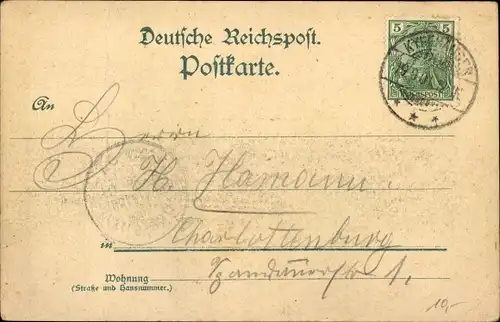 5
Deutsche Reichspost.
Postkarte.
An
Herrn
H. Hamann
in Charlottenburg
Wohnung
(Straße und Hausnummer.)
Spandauerstr 1,
10,-